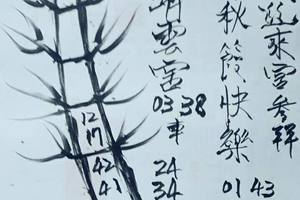 來宮參詳
秋節快樂
01 43
雲宮
03 38
車
24
34
12
17
42
41